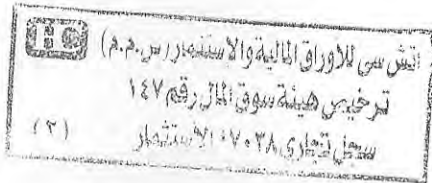 اتش سى للاوراق المالية والاستثمار (س.م.م)
ترخيص هيئة سوق المال رقم ١٤٧
سجل تجارى ١٠٧٠٣٨ الاستثمار
(٢)